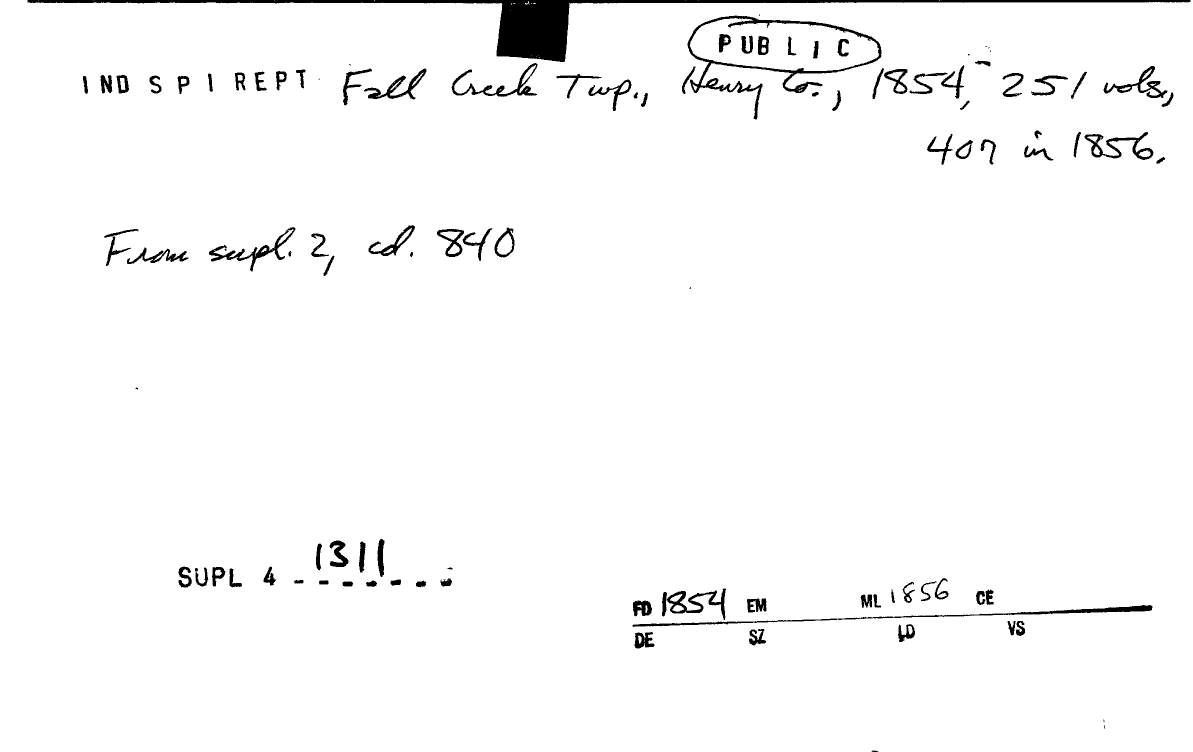 PUBLIC
IND SPI REPT Fall Creek Twp., Henry Co., 1854, - 251 vols.,
407 in 1856.
From supl. 2, cd. 840
SUPL 4 1311
FD 1854 EM ML 1856 CE
DE SZ LD VS